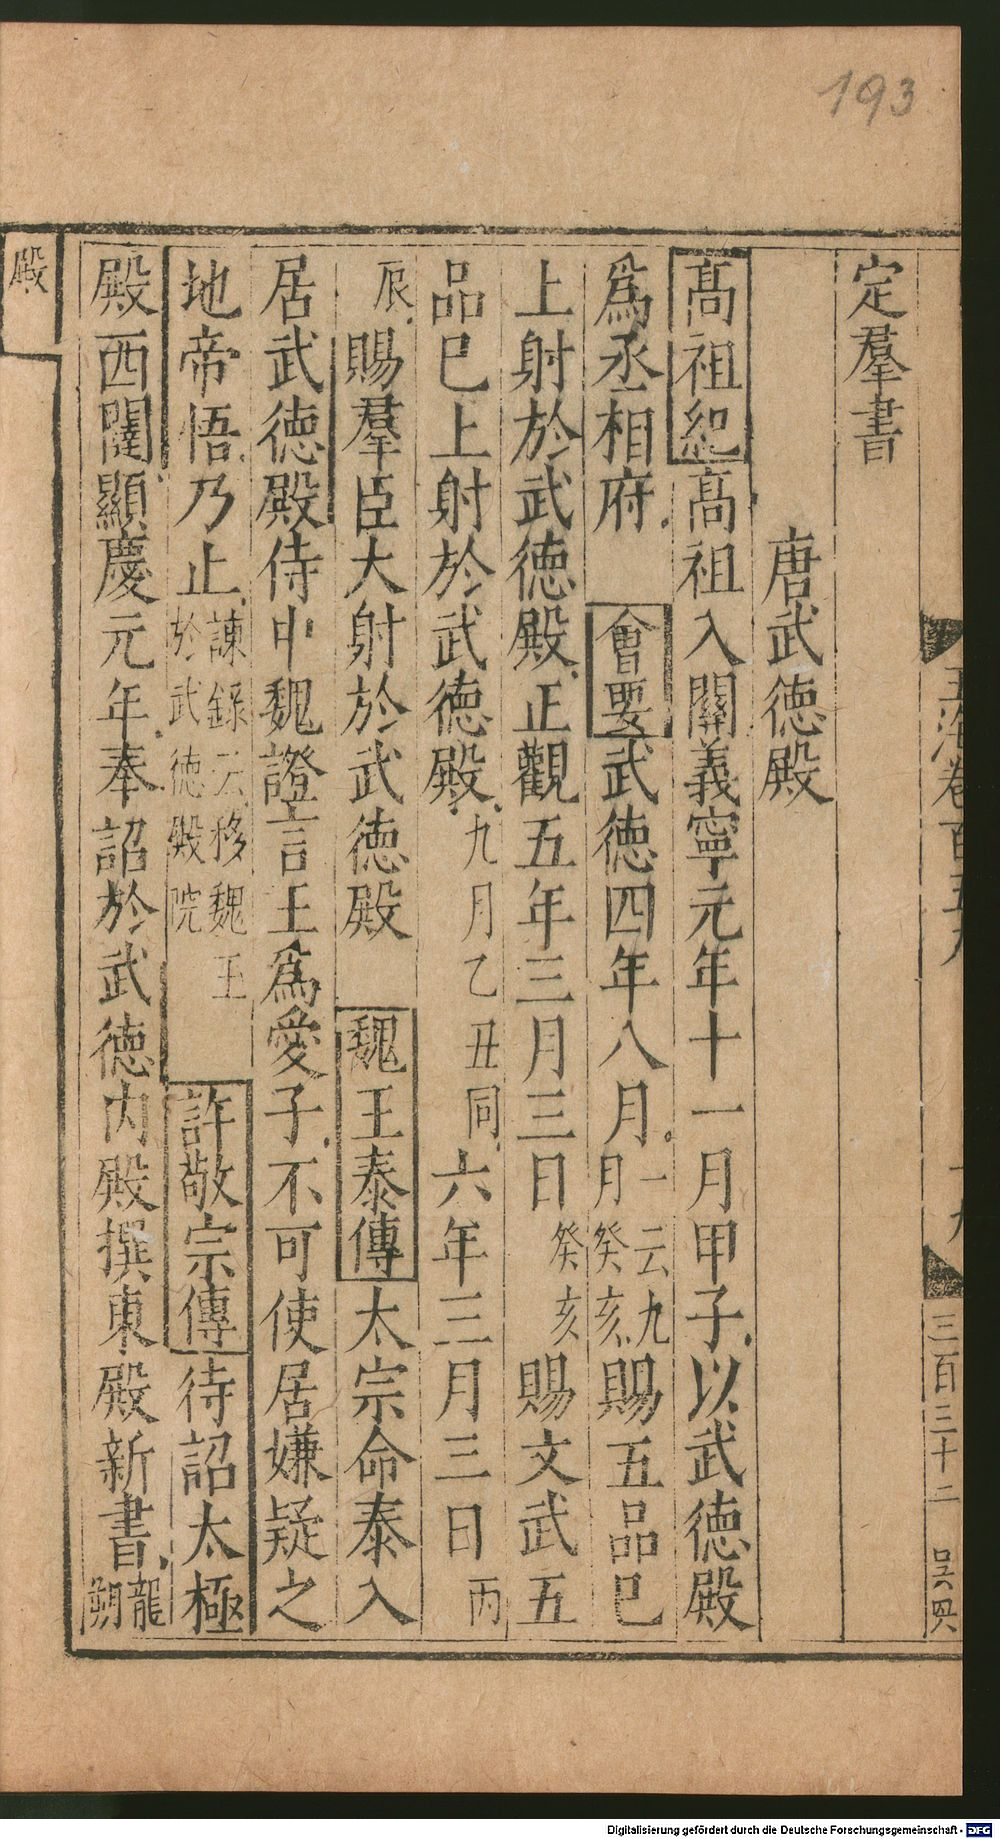 193
玉海卷百五九
十九
三百三十二
吳
定羣書
唐武德殿
髙祖紀髙祖入關義寧元年十一月甲子以武德殿
爲丞相府 會要武德四年八月一云九月癸亥賜五品巳
上射於武德殿正觀五年三月三日癸亥賜文武五
品巳上射於武德殿九月乙丑同六年三月三日丙
辰賜羣臣大射於武德殿 魏王泰傳太宗命泰入
居武德殿侍中魏證言王爲愛子不可使居嫌疑之
地帝悟乃止諫録云移魏王於武德殿院 許敬宗傳待詔太極
殿西闥顯慶元年奉詔於武德内殿撰東殿新書龍朔
殿
Digitalisierung gefördert durch die Deutsche Forschungsgemeinschaft - DFG